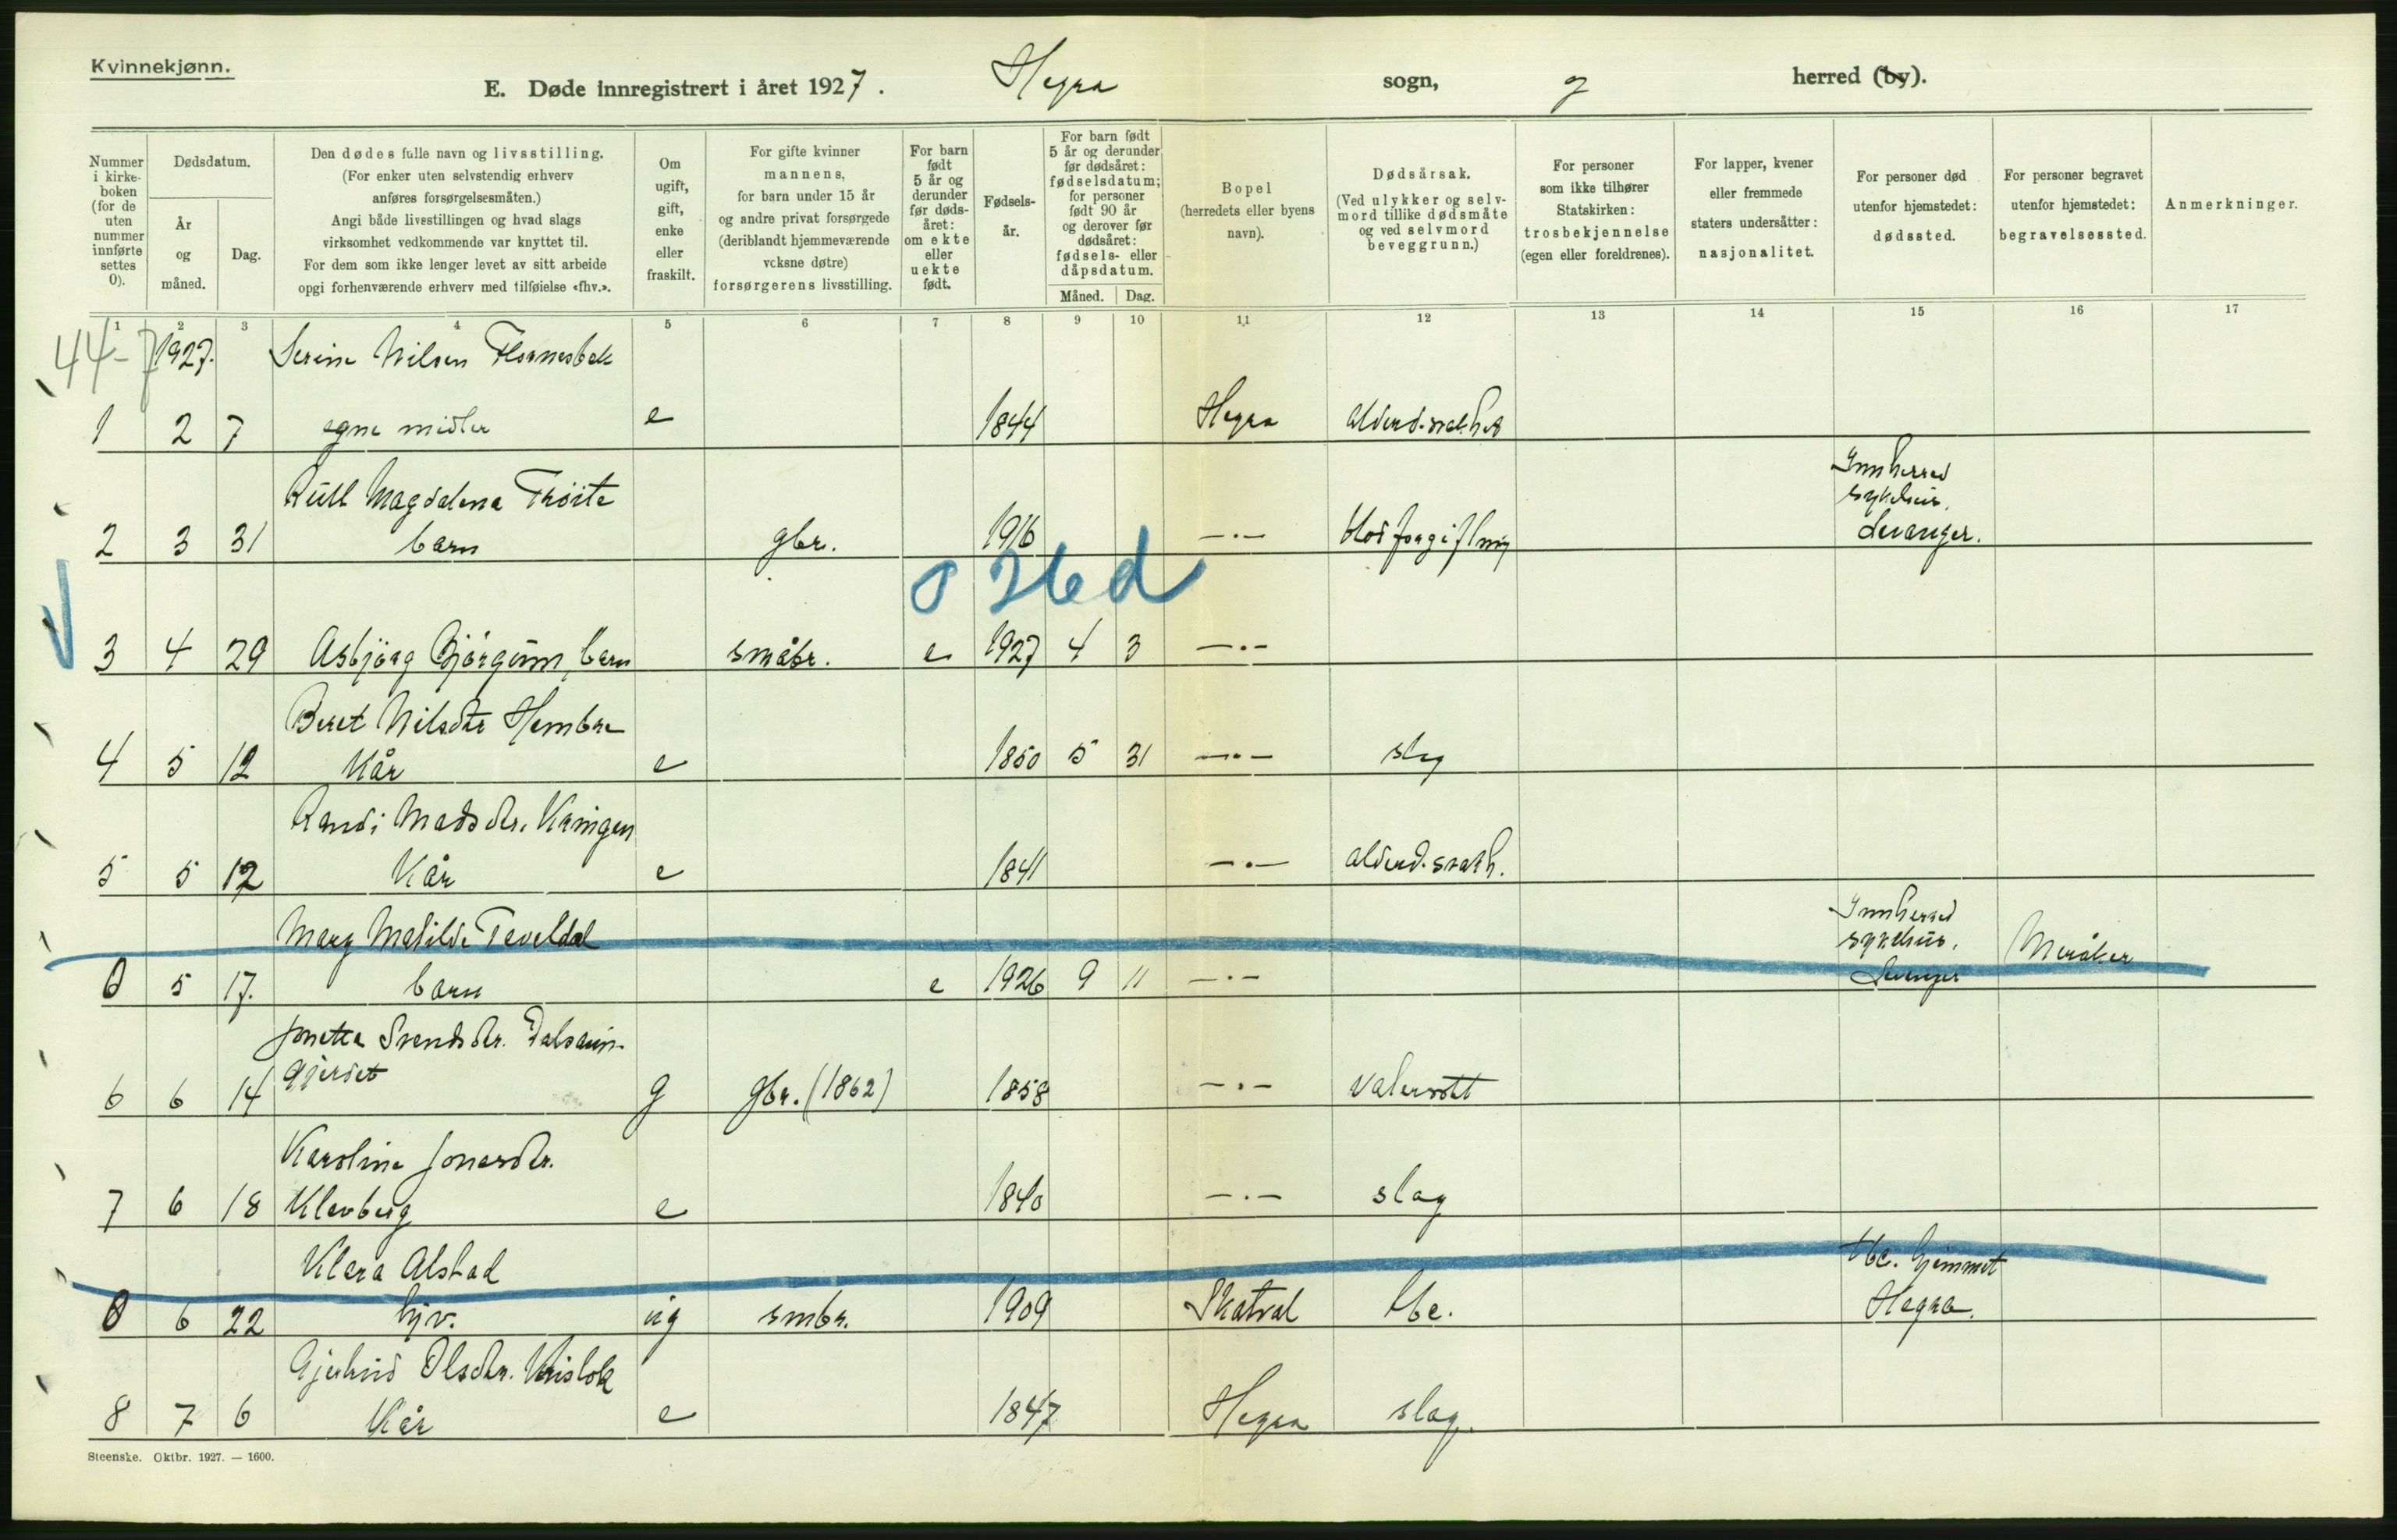 Kvinnekjønn.
E. Døde innregistrert i året 1927. Hegra sogn, herred (by).
Nummer i kirkeboken (for de uten nummer innførte settes 0).
Dødsdatum.
År og måned.
Dag.
Den dødes fulle navn og livsstilling.
(For enker uten selvstendig erhverv anføres forsørgelsesmåten.)
Angi både livsstillingen og hvad slags virksomhet vedkommende var knyttet til.
For dem som ikke lenger levet av sitt arbeide opgi forhenværende erhverv med tilføielse «fhv.».
Om ugift, gift, enke eller fraskilt.
For gifte kvinner mannens, for barn under 15 år og andre privat forsørgede (deriblandt hjemmeværende voksne døtre) forsørgerens livsstilling.
For barn født 5 år og derunder før dødsåret: om ekte eller uekte født.
Fødselsår.
For barn født 5 år og derunder før dødsåret: fødselsdatum; for personer født 90 år og derover før dødsåret: fødsels- eller dåpsdatum.
Måned.
Dag.
Bopel (herredets eller byens navn).
Dødsårsak.
(Ved ulykker og selvmord tillike dødsmåte og ved selvmord beveggrunn.)
For personer som ikke tilhører Statskirken: trosbekjennelse (egen eller foreldrenes).
For lapper, kvener eller fremmede staters undersåtter: nasjonalitet.
For personer død utenfor hjemstedet: dødssted.
For personer begravet utenfor hjemstedet: begravelsessted.
Anmerkninger.
1 2 3 4 5 6 7 8 9 10 11 12 13 14 15 16 17
44-7 1927. Serine Nilsen
1 2 7 egne midler e 1844 Hegra
Magdalena Tröite Innherred sykehus.
2 3 31 barn gbr. 1916 —.— Blodforgiftning Levanger.
26 d
3 4 29 Asbjörg Bjørgum, barn småbr. e 1927 4 3 —.—
Beret Nilsdtr Hembre
4 5 12 Kår e 1850 5 31 —.— slag
Randi Madsdtr. Kringen
5 5 12 Kår e 1841 —.— alderd. svakh.
Mary Matilde Teveldal Innherred sykehus,
0 5 17. barn e 1926 9 11 —.— Levanger Meråker
Jonetta Svendsdtr.
6 6 14 Gjerdet g gbr. (1862) 1858 —.— Vatersott
Karoline Jonasdtr.
7 6 18 Klevberg e 1840 —.— slag
Klara Alstad tbc. hjemmet
0 6 22 hjv. ug smbr. 1909 Skatval tbc. Hegra.
Olsdtr.
8 7 6 Kår e 1847 Hegra slag.
Steenske. Oktbr. 1927. — 1600.